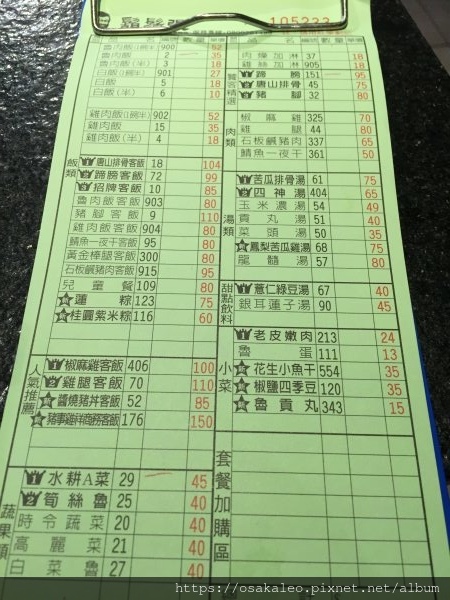 鬍鬚張 105233
品名 編號 數量 單價
魯肉飯(1個半) 900 52
魯肉飯 2 35
魯肉飯(半) 3 18
白飯(1個半) 901 27
白飯 5 18
白飯(半) 6 10
雞肉飯(1個半) 902 52
雞肉飯 15 35
雞肉飯(半) 4 18
飯類
唐山排骨客飯 18 104
蹄膀客飯 72 99
招牌客飯 10 85
魯肉飯客飯 903 80
豬腳客飯 9 110
雞肉飯客飯 904 80
鯖魚一夜干客飯 95 80
黃金棒腿客飯 300 80
石板鹹豬肉客飯 915 95
兒童餐 109 80
蓮粽 123 75
桂圓紫米粽 116 60
人氣推薦
椒麻雞客飯 406 100
雞腿客飯 70 110
醬燒豬丼客飯 52 85
豬事雞祥商務客飯 176 150
蔬果類
水耕A菜 29 45
筍絲魯 25 40
時令蔬菜 20 40
高麗菜 21 40
白菜魯 27 40
品名 編號 數量 單價
肉燥加淋 37 18
雞絲加淋 905 18
饕客精選
蹄膀 151 95
唐山排骨 45 75
豬腳 32 80
肉類
椒麻雞 325 70
雞腿 44 80
石板鹹豬肉 337 65
鯖魚一夜干 361 50
湯類
苦瓜排骨湯 61 75
四神湯 404 65
玉米濃湯 54 49
貢丸湯 51 40
菜頭湯 50 35
鳳梨苦瓜雞湯 68 75
龍髓湯 57 80
甜點飲料
薏仁綠豆湯 67 40
銀耳蓮子湯 90 45
小菜
老皮嫩肉 213 24
魯蛋 111 13
花生小魚干 554 35
椒鹽四季豆 120 35
魯貢丸 343 15
套餐加購區
https://osakaleo.pixnet.net/album